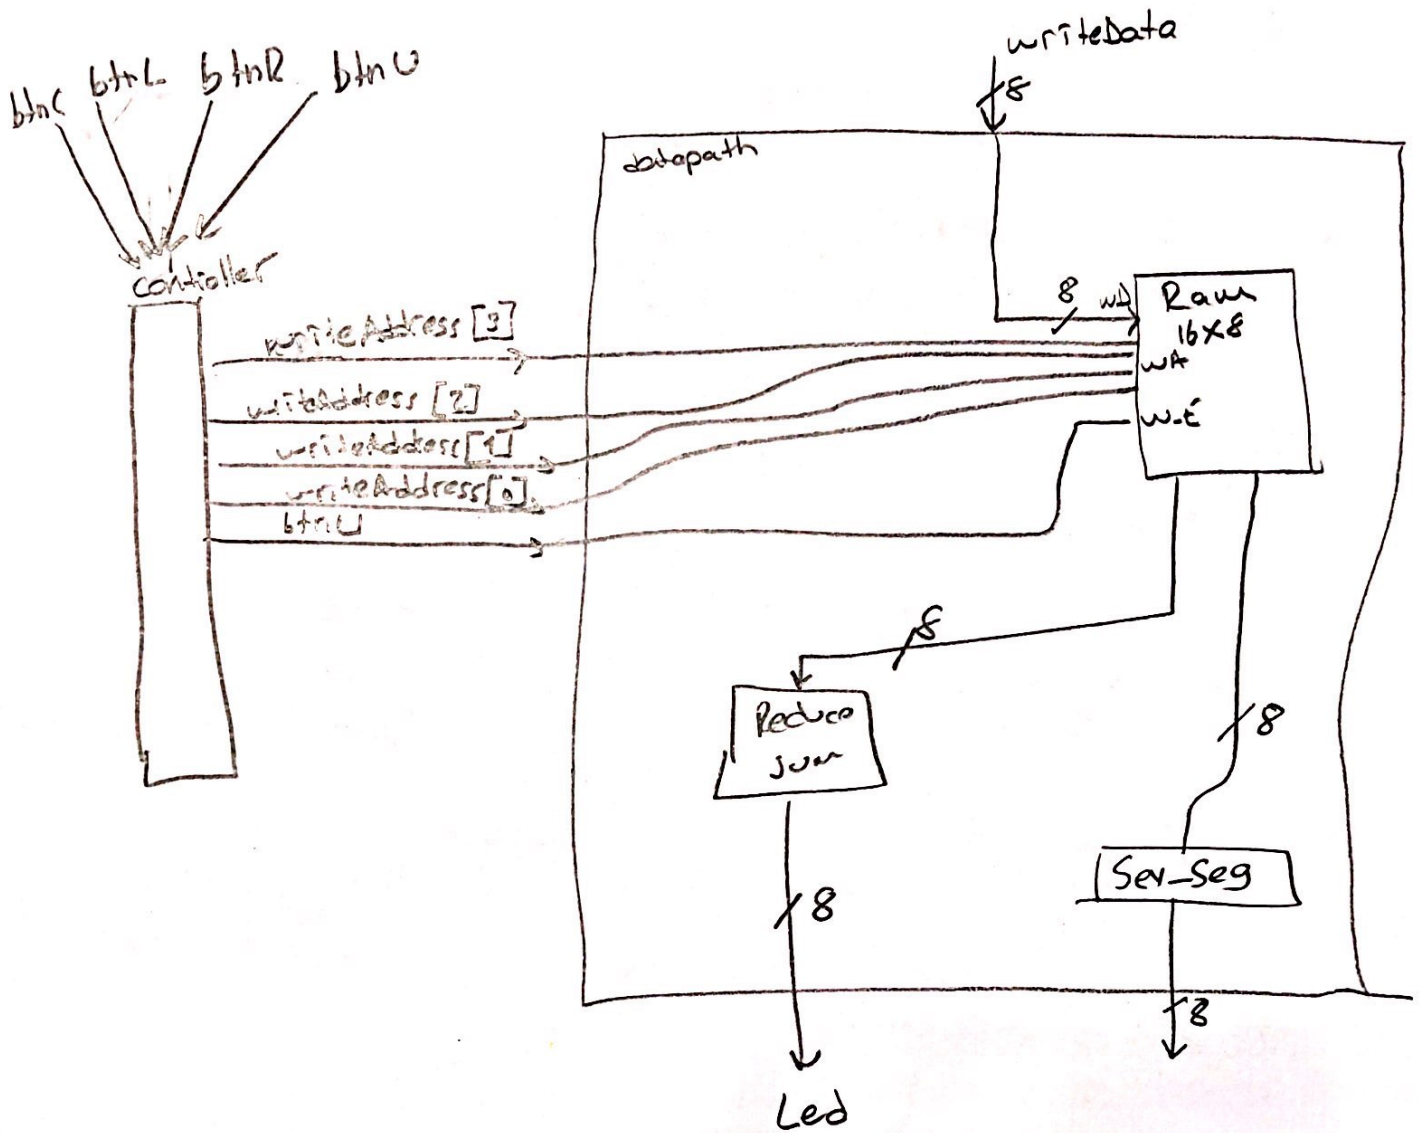 btnC btnL btnR btnU
writeData
8
datapath
controller
8 WD Ram
16x8
writeAddress [3]
WA
writeAddress [2]
W-E
writeAddress [1]
writeAddress [0]
btnU
8
Reduce
sum
8
8
Sev_Seg
8
Led